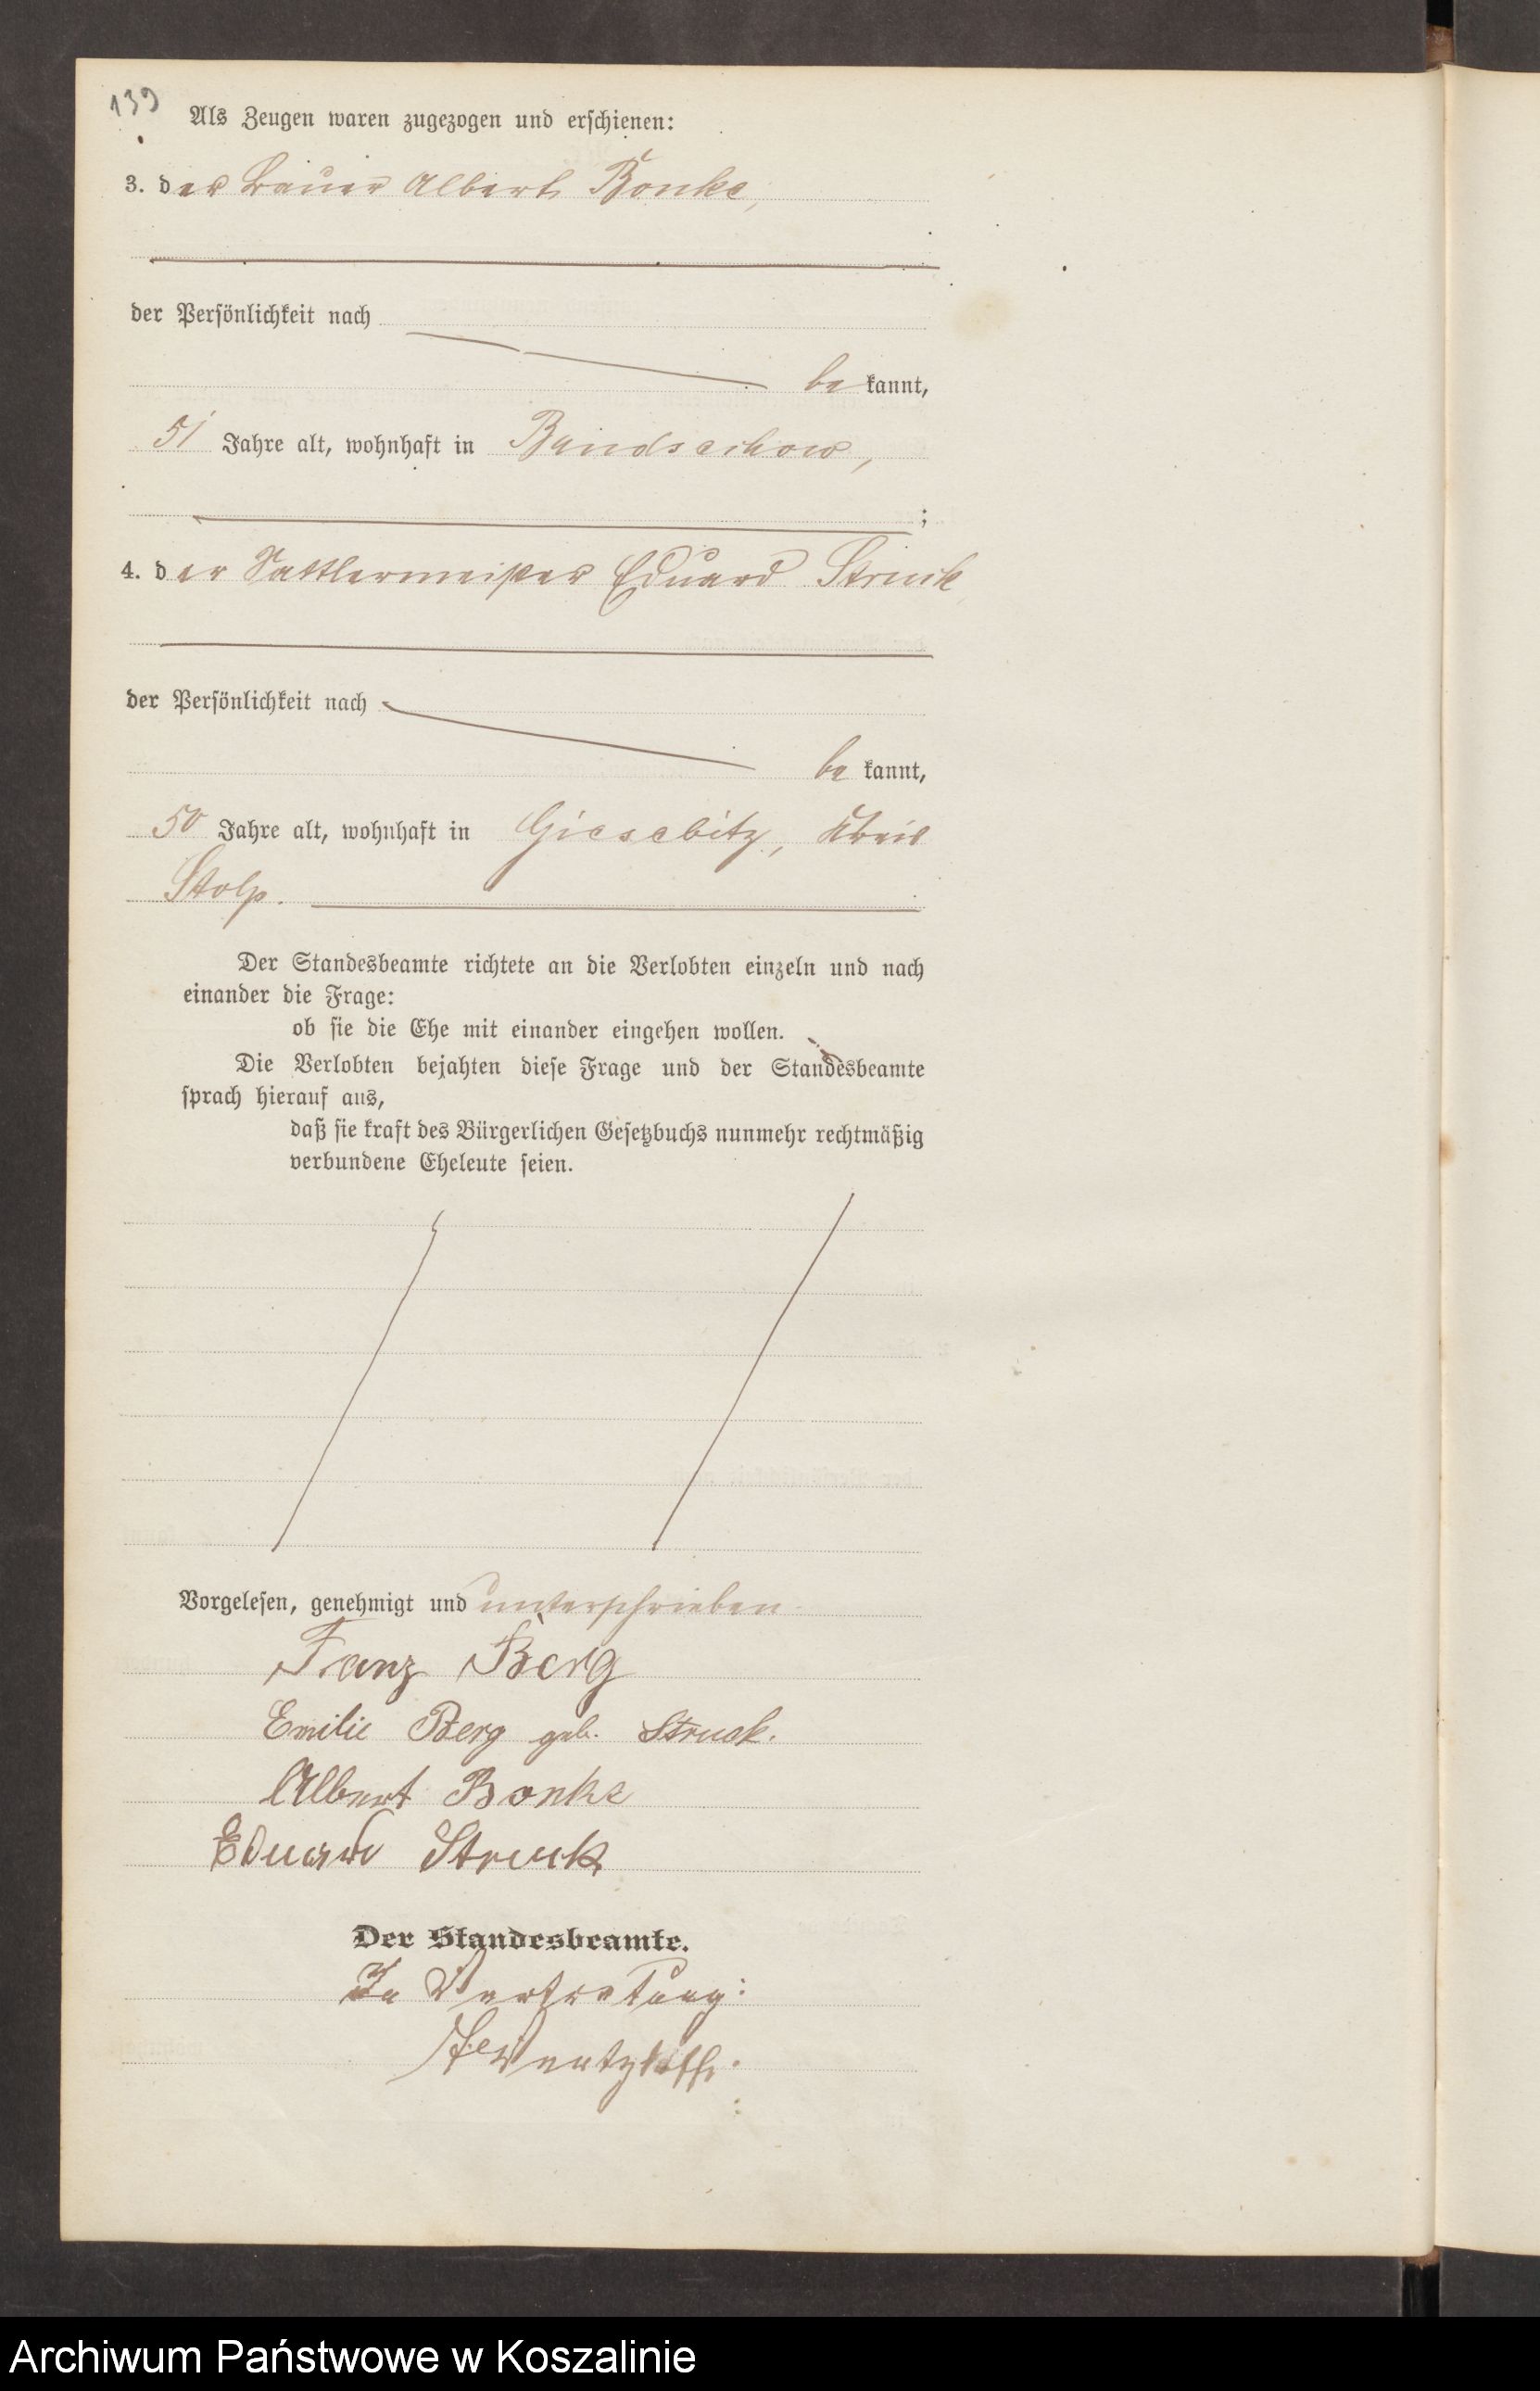 139
Als Zeugen waren zugezogen und erschienen:
3. der Bauer Albert Bonke,
der Persönlichkeit nach
bekannt,
51 Jahre alt, wohnhaft in Bandsechow,
;
4. der Sattlermeister Eduard Struck
der Persönlichkeit nach
bekannt,
50 Jahre alt, wohnhaft in Giesebitz, Kreis
Stolp.
Der Standesbeamte richtete an die Verlobten einzeln und nach
einander die Frage:
ob sie die Ehe mit einander eingehen wollen.
Die Verlobten bejahten diese Frage und der Standesbeamte
sprach hierauf aus,
daß sie kraft des Bürgerlichen Gesetzbuchs nunmehr rechtmäßig
verbundene Eheleute seien.
Vorgelesen, genehmigt und unterschrieben
Franz Berg
Emilie Berg geb. Struck.
Albert Bonke
Eduard Struck
Der Standesbeamte.
In Vertretung:
Archiwum Państwowe w Koszalinie